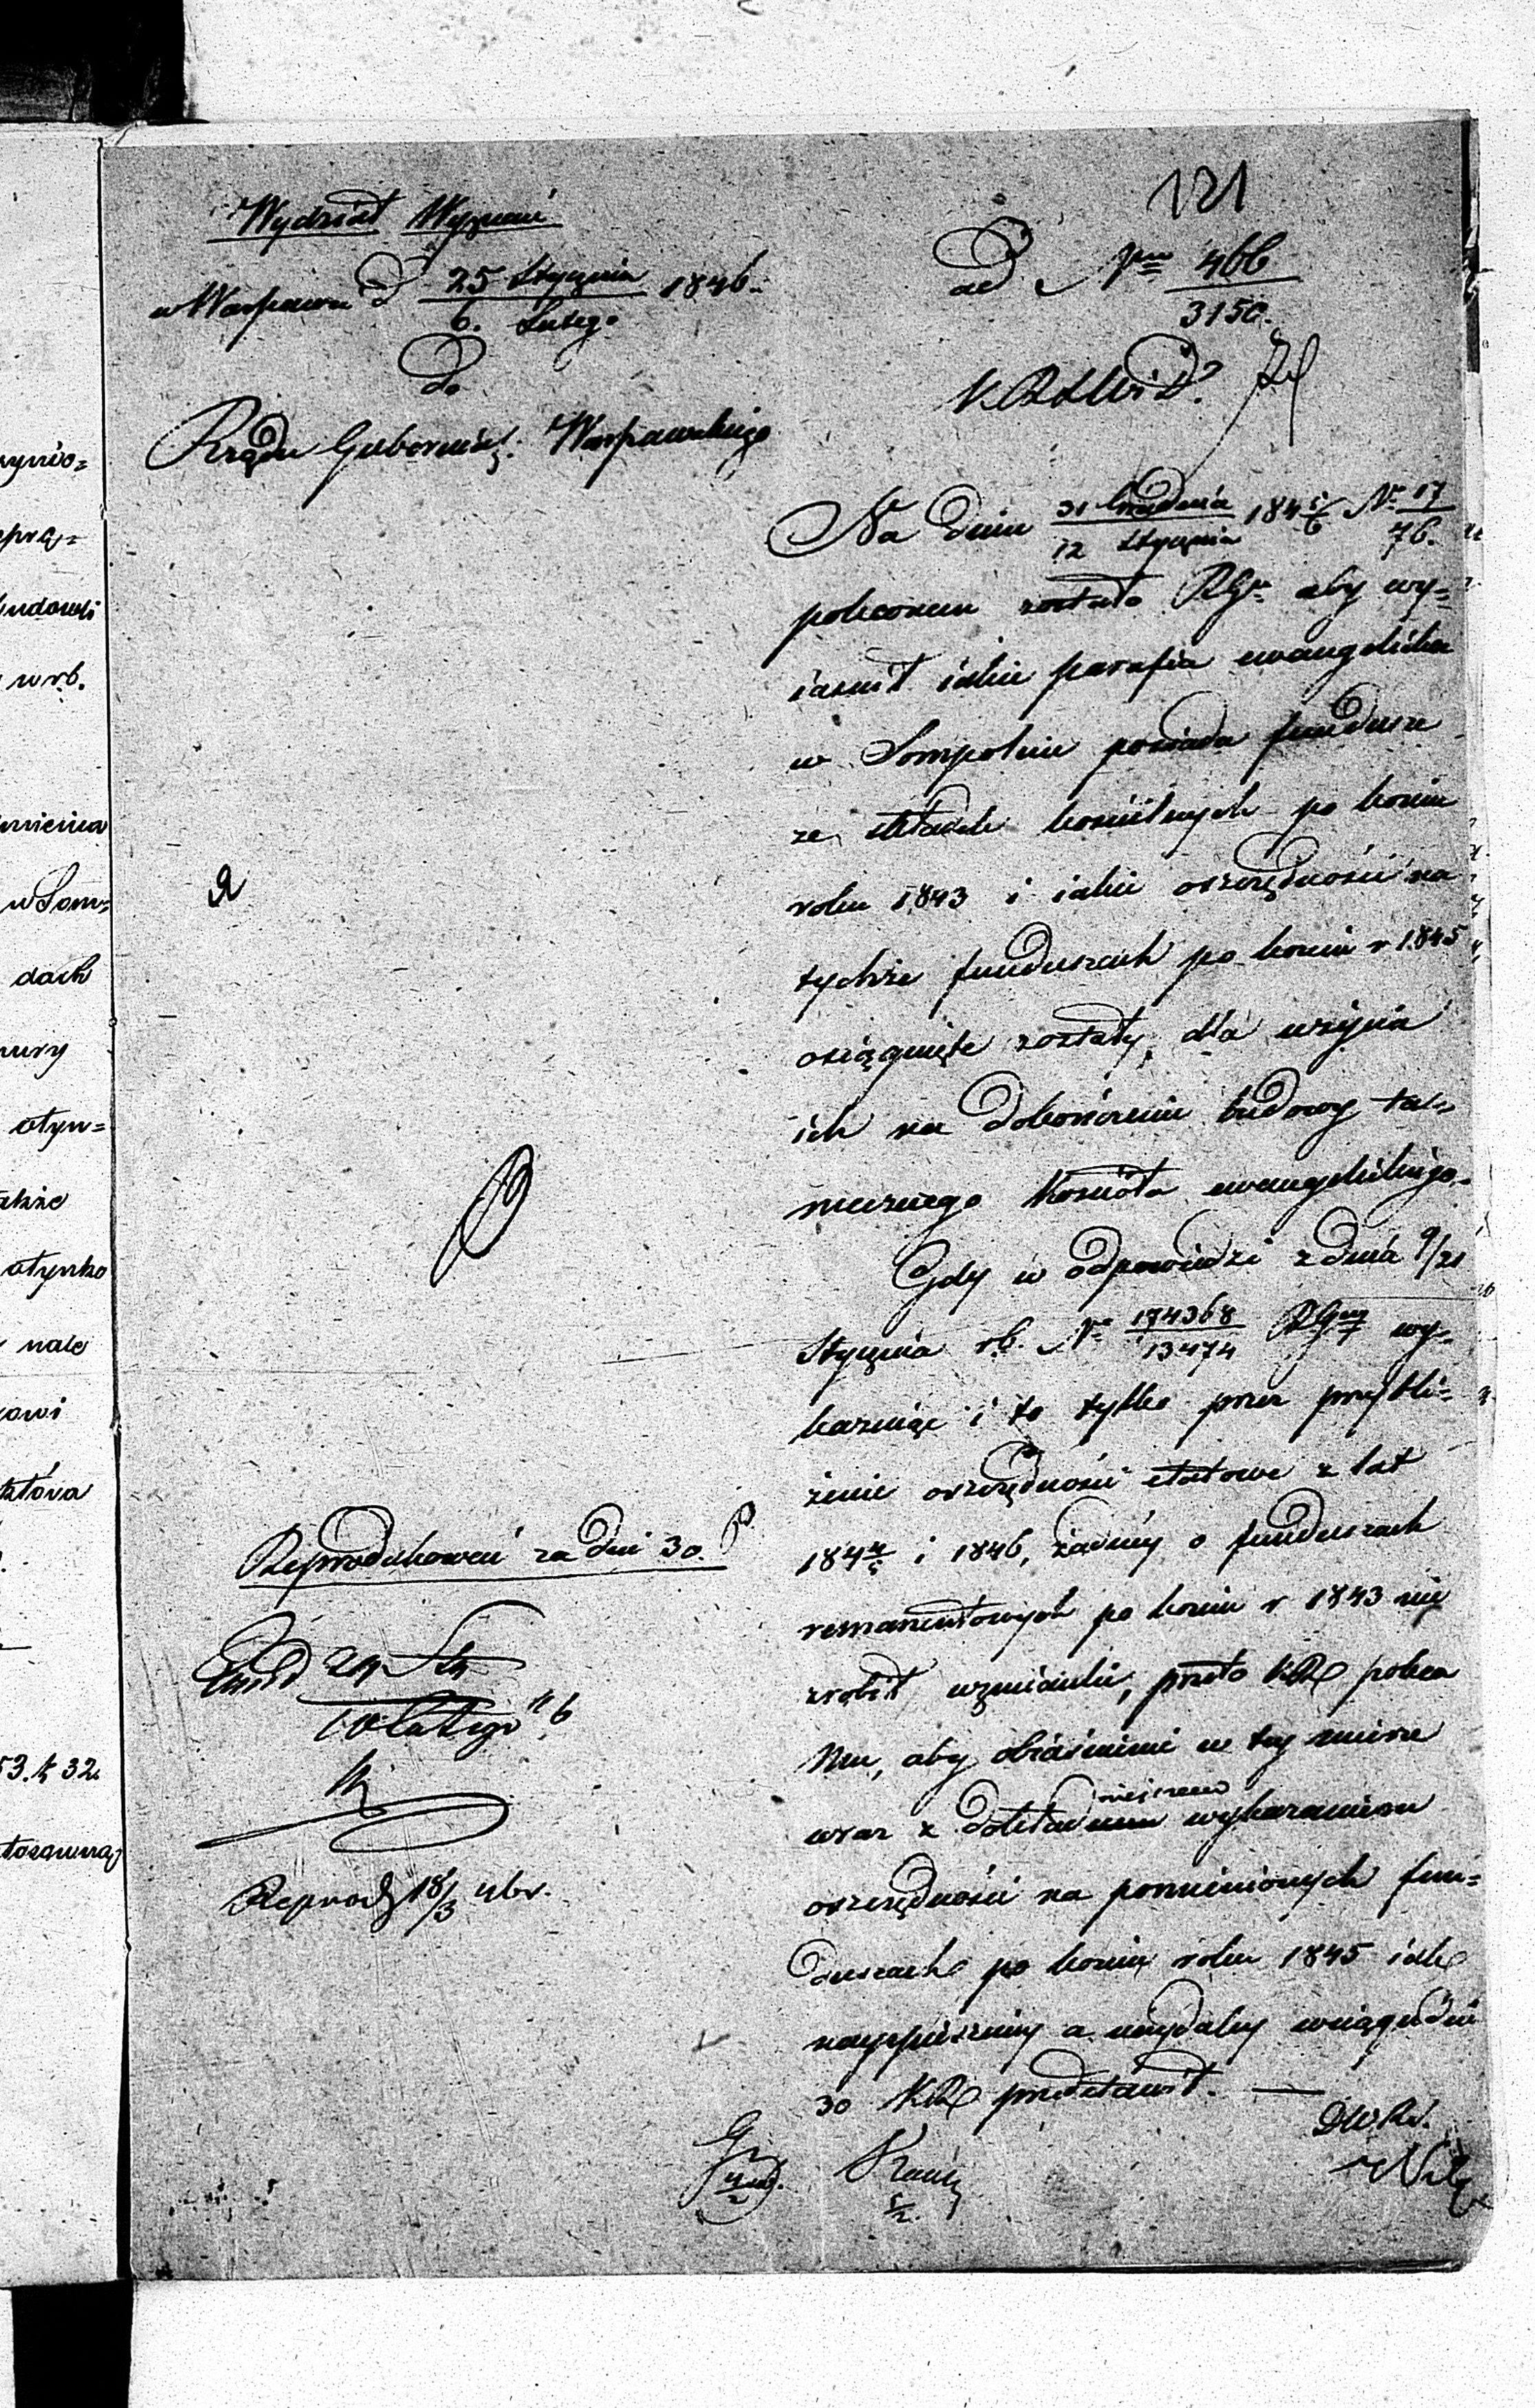 121
Wydział Wyznań
w Warszawie d 25 Stycznia / 6. Lutego 1846.
Do
Rządu Gubernial: Warszawskiego
ad Nrm 466 / 3150.
K.R.S.W.i D.
Na dniu 31 Grudnia / 12 Stycznia 184 5/6 No 17 / 76.
poleconem zostało RGu aby wy=
iaśnił iakie parafia ewangelicka
w Sompolnie posiada fundusze
ze składek kościelnych po koniec
roku 1843 i iakie oszczędności na
tychże funduszach po koniec r 1845
osiągnięte zostały, dla użycia
ich na dokończenie budowy ta=
mecznego kościoła ewangelickiego.
Gdy w odpowiedzi z dnia 9/21
Stycznia rb. No 174368 / 13474 RG wy=
kazując i to tylko przez przybli=
żenie oszczędności etatowe z lat
184 4/5 i 1846, żadney o funduszach
remanentowych po koniec r 1843 nie
zrobił wzmianki, przeto KR poleca
Mu, aby obiaśnienie w tey mierze
wraz z dokładnem wykazaniem
oszczędności na pomienionych fun=
duszach po koniec roku 1845 iak
nayspieszniey a naydaley w ciągu dni
30 KR przedstawił. —
Reprodukować za dni 30.
10 Lutego
Reprod 18/3 46r.
D.W.Rz.